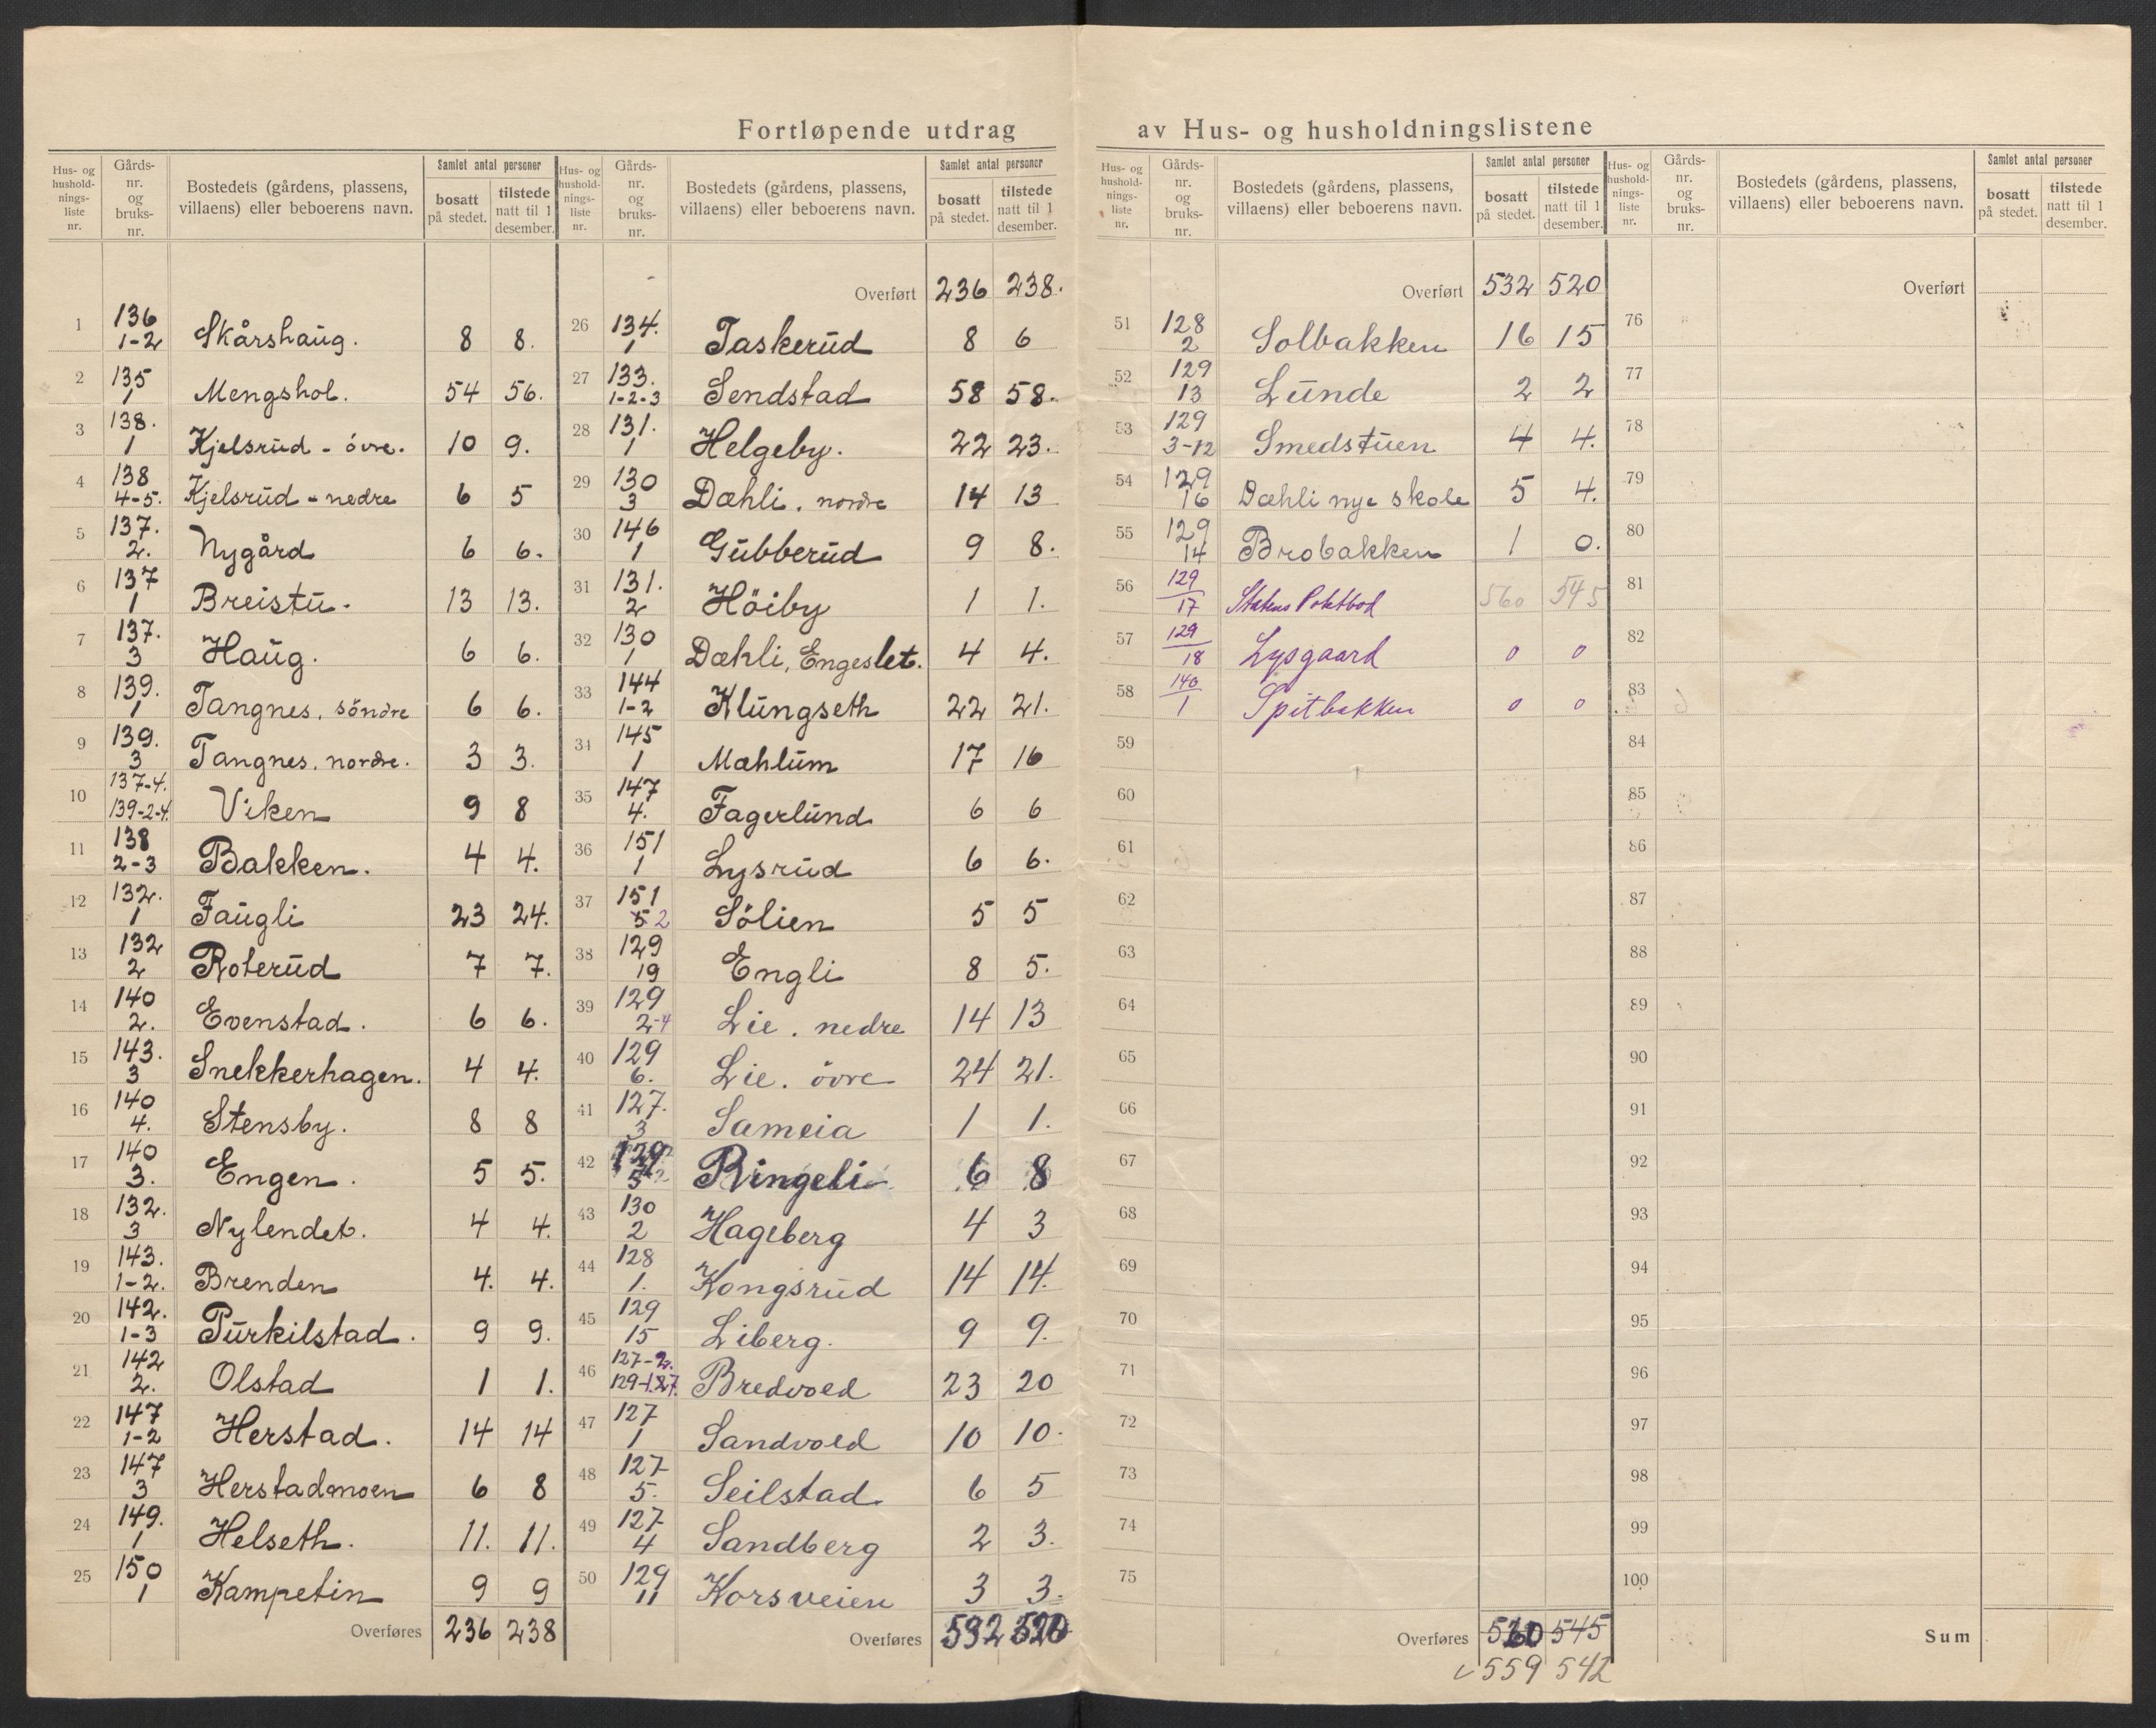 Fortløpende utdrag av Hus- og husholdningslistene
Hus- og hushold-nings-liste nr. | Gårds-nr. og bruks-nr. | Bostedets (gårdens, plassens, villaens) eller beboerens navn. | Samlet antal personer: bosatt på stedet. | tilstede natt til 1 desember.
1 136 1-2 Skårshaug. 8 8.
2 135 1 Mengshol. 54 56.
3 138. 1 Kjelsrud - övre. 10 9.
4 138 4-5. Kjelsrud - nedre 6 5
5 137. 2. Nygård 6 6.
6 137 1 Breistu. 13 13.
7 137. 3 Haug. 6 6.
8 139. 1 Tangnes, söndre 6 6.
9 139. 3 Tangnes, nordre. 3 3.
10 137-4. 139-2-4. Viken 9 8
11 138 2-3 Bakken. 4 4.
12 132. 1 Faugli 23 24.
13 132 2 Roterud 7 7.
14 140 2. Evenstad. 6 6.
15 143. 3 Snekkerhagen. 4 4.
16 140 4. Stensby. 8 8
17 140 3. Engen. 5 5.
18 132. 3 Nylendet. 4 4.
19 143. 1-2. Brenden 4. 4.
20 142. 1-3 Purkilstad. 9 9.
21 142 2. Olstad 1 1.
22 147 1-2 Herstad. 14 14
23 147 3 Herstadmoen 6 8
24 149. 1 Helseth. 11. 11.
25 150 1 Kampetin 9 9
Overføres 236 238
Hus- og hushold-nings-liste nr. | Gårds-nr. og bruks-nr. | Bostedets (gårdens, plassens, villaens) eller beboerens navn. | Samlet antal personer: bosatt på stedet. | tilstede natt til 1 desember.
Overført 236 238.
26 134. 1 Taskerud 8 6
27 133. 1-2-3 Sendstad 58 58.
28 131. 1 Helgeby. 22 23.
29 130 3 Dæhli, nordre 14 13
30 146 1 Gubberud 9 8.
31 131. 2 Höiby 1 1.
32 130 1 Dæhli, Engeslet. 4 4.
33 144 1-2 Klungseth 22 21.
34 145 1 Mæhlum 17 16
35 147 4. Fagerlund 6 6
36 151 1 Lysrud 6 6.
37 151 5 2 Sölien 5 5
38 129 19 Engli 8 5.
39 129 2-4 Lie. nedre 14 13
40 129 6. Lie. övre 24 21.
41 127. 3 Sameia 1 1.
42 129 Ringeli 6 8
43 130 2 Hageberg 4 3
44 128 1. Kongsrud 14 14.
45 129 15 Liberg. 9 9.
46 127-2. Bredvold 23 20
47 127 1 Sandvold 10 10.
48 127 5. Seilstad 6 5
49 127 4 Sandberg 2 3.
50 129 11 Korsveien 3 3.
Overføres 532 520
Hus- og hushold-nings-liste nr. | Gårds-nr. og bruks-nr. | Bostedets (gårdens, plassens, villaens) eller beboerens navn. | Samlet antal personer: bosatt på stedet. | tilstede natt til 1 desember.
Overført 532 520
51 128 2 Solbakken 16 15
52 129 13 Lunde 2 2
53 129 3-12 Smedstuen 4 4.
54 129 16 Dæhli nye skole 5 4.
55 129 14 Brobakken 1 0.
56 129 17 Statens 560 545
57 129 18 Lysgaard 0 0
58 140 1 Spitbakken 0 0
59
60
61
62
63
64
65
66
67
68
69
70
71
72
73
74
75
Overføres 560 545
559 542
Hus- og hushold-nings-liste nr. | Gårds-nr. og bruks-nr. | Bostedets (gårdens, plassens, villaens) eller beboerens navn. | Samlet antal personer: bosatt på stedet. | tilstede natt til 1 desember.
Overført
76
77
78
79
80
81
82
83
84
85
86
87
88
89
90
91
92
93
94
95
96
97
98
99
100
Sum